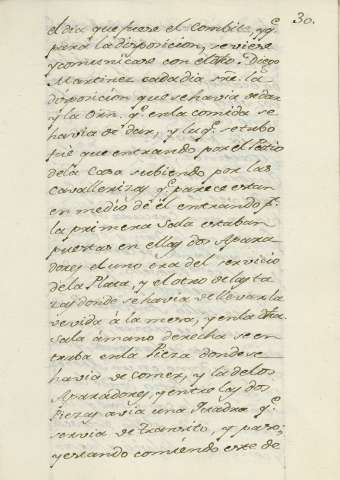 30.
el dia que fuese el combite, y q.e
para la disposicion, se viese
y comunicase con el dho. Diego
Martinez cada dia sre. la
disposicion que se havia de dar,
y la Orn. q.e en la comida se
havia de dar, y la q.e se tubo
fué que entrando por el Patio
de la Casa subiendo por las
cavallerizas q.e parece estan
en medio de él entrando p.r
la primera Sala estaban
puestas en ellas dos Apara-
dores el uno era del servicio
de la Plata, y el otro de las ta-
zas donde se havia de llevar la
vevida à la mesa, y en la dha.
Sala à mano derecha se en-
traba en la Pieza donde se
havia de comer, y la de los
Aparadores, y entre las dos
Piezas avia una quadra q.e
servia de transito, y paso;
y estando comiendo este de